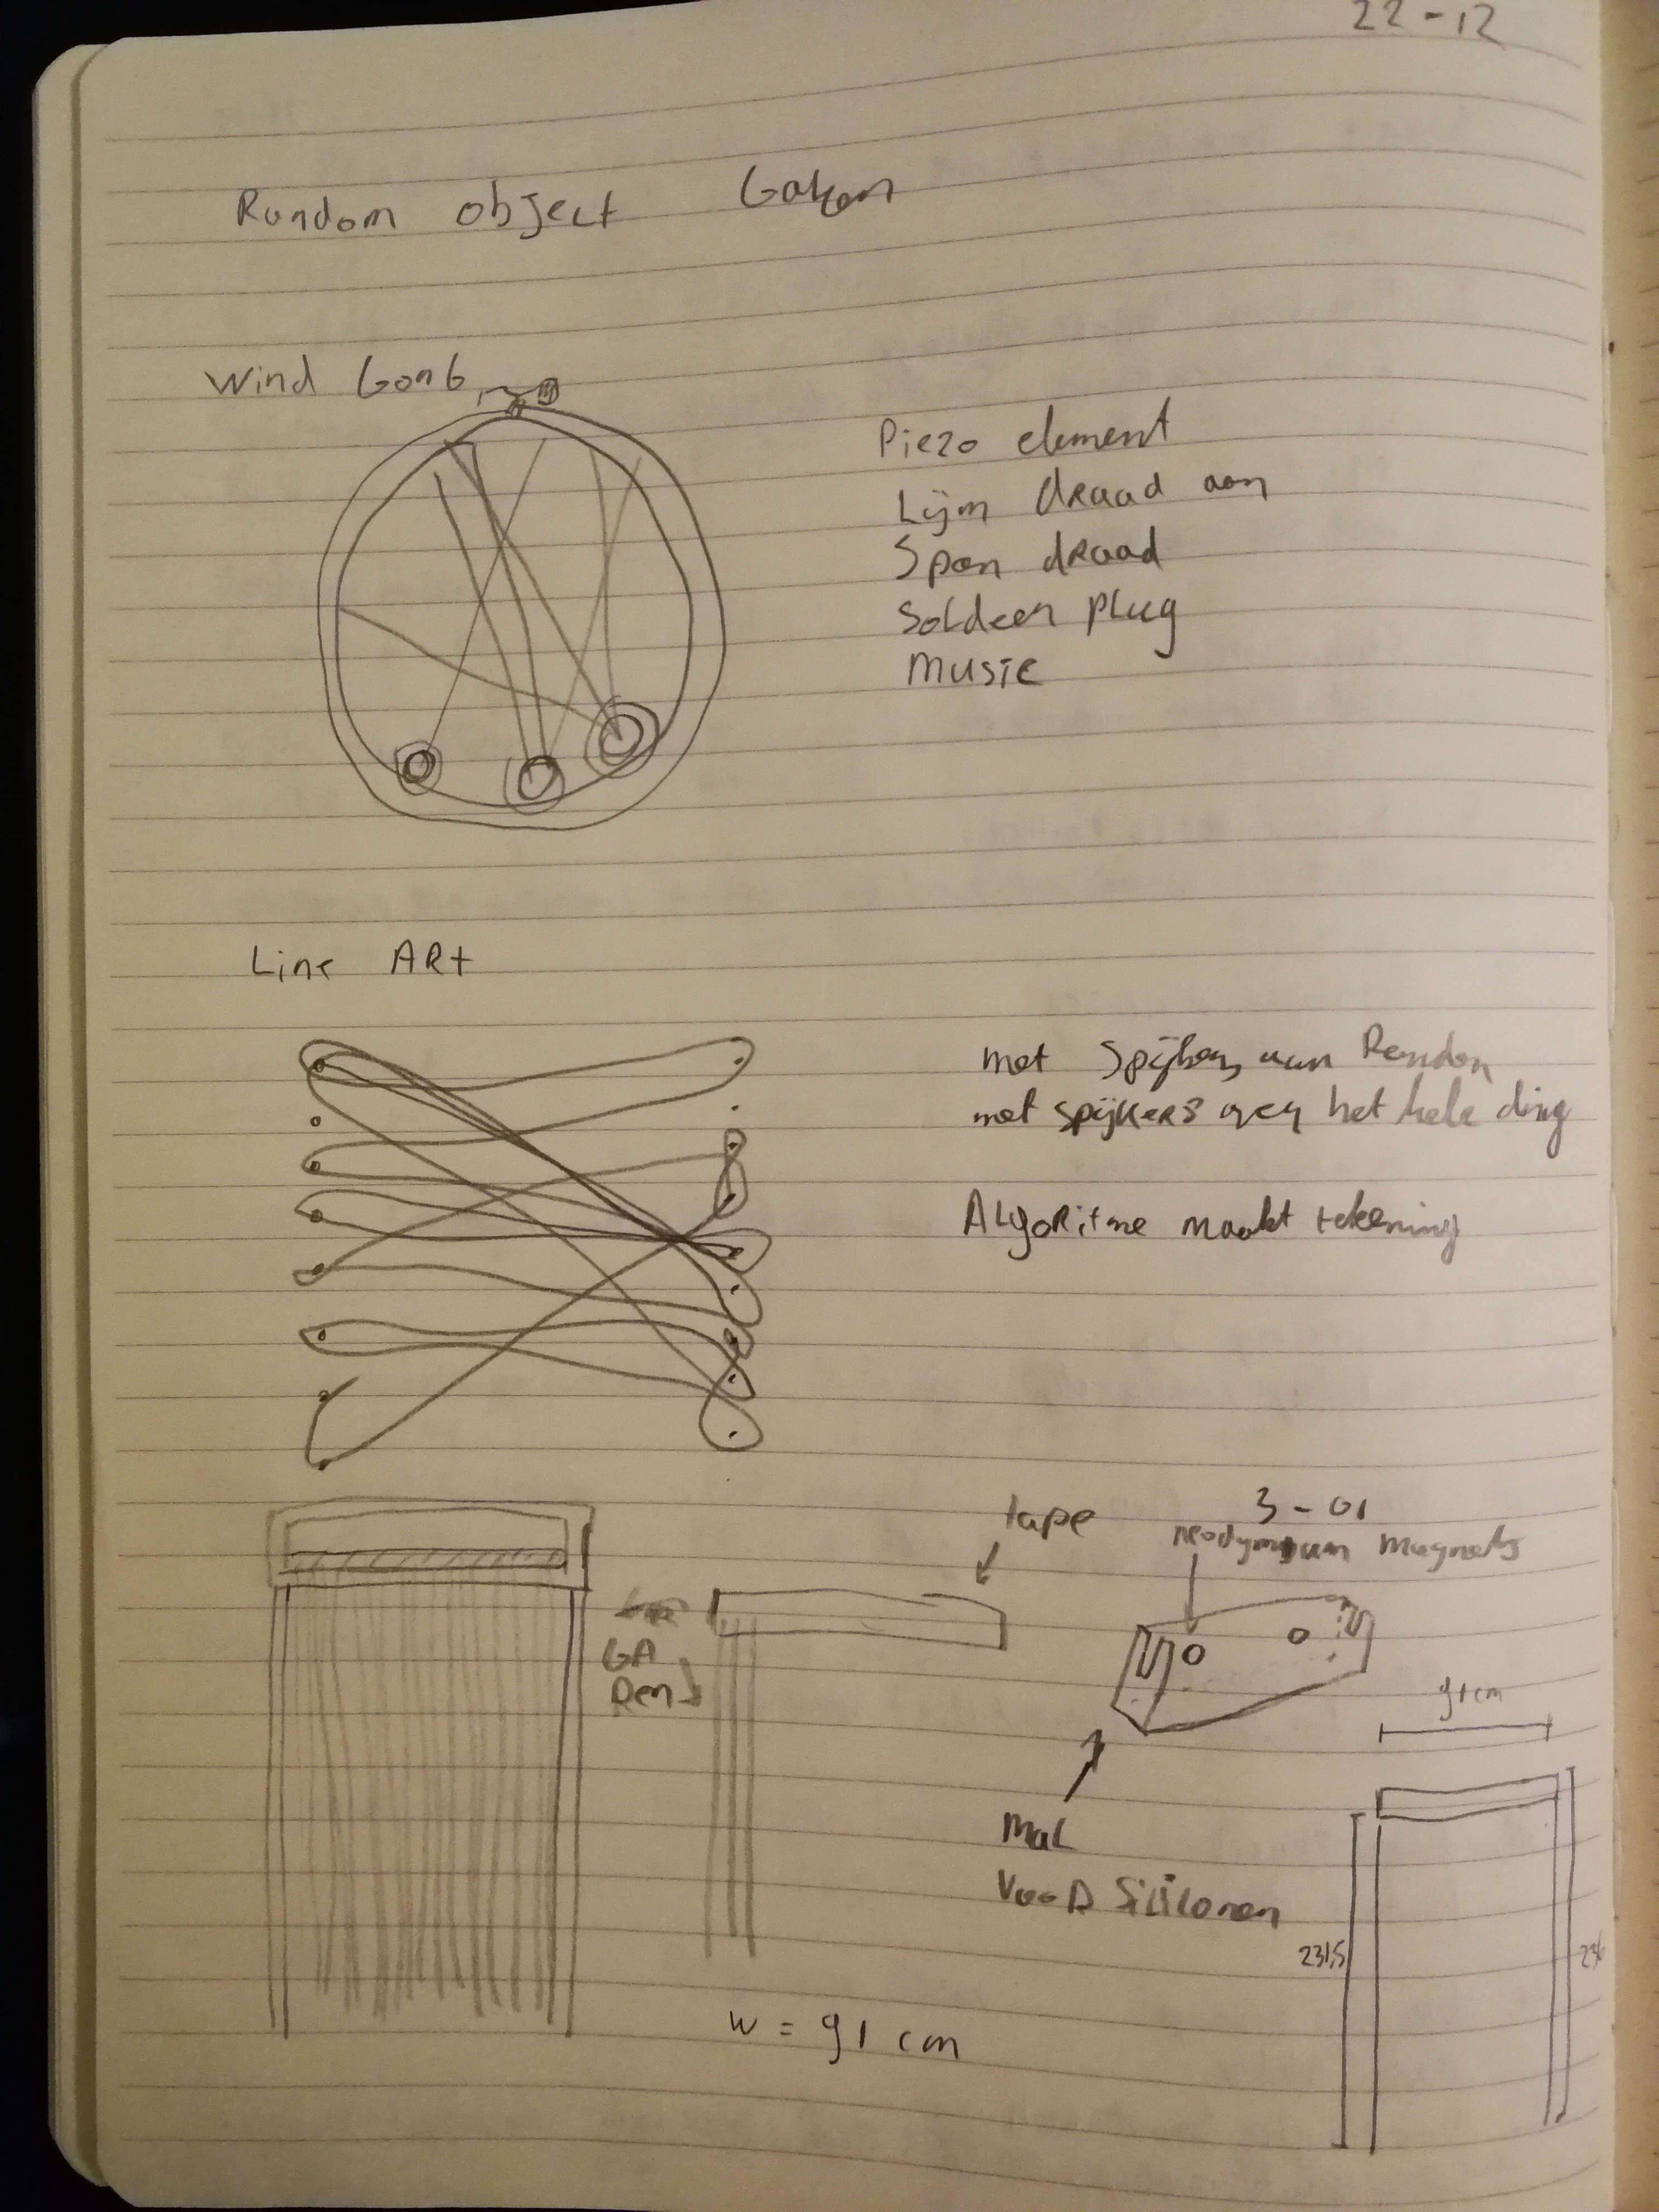 22-12
Random object
Wind GonG
Piezo element
Lijm draad aan
Span draad
Soldeer plug
Music
Line ARt
met spijkers aan Randen
met spijkers over het hele ding
Algoritme maakt tekening
3-01
tape
neodymium magnets
GA
Ren
91 cm
Mal
Voor Siliconen
231,5
236
w = 91 cm